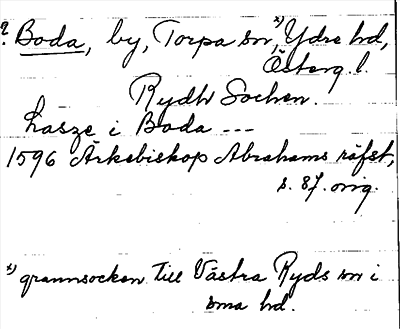 ? Boda, by, Torpa sn,ˣ⁾ Ydre hd,
Österg. l.
Rydh Sochen.
Lasze i Boda ---
1596 Ärkebiskop Abrahams räfst,
s. 87. orig.
x) grannsocken till Västra Ryds sn i
sma hd.